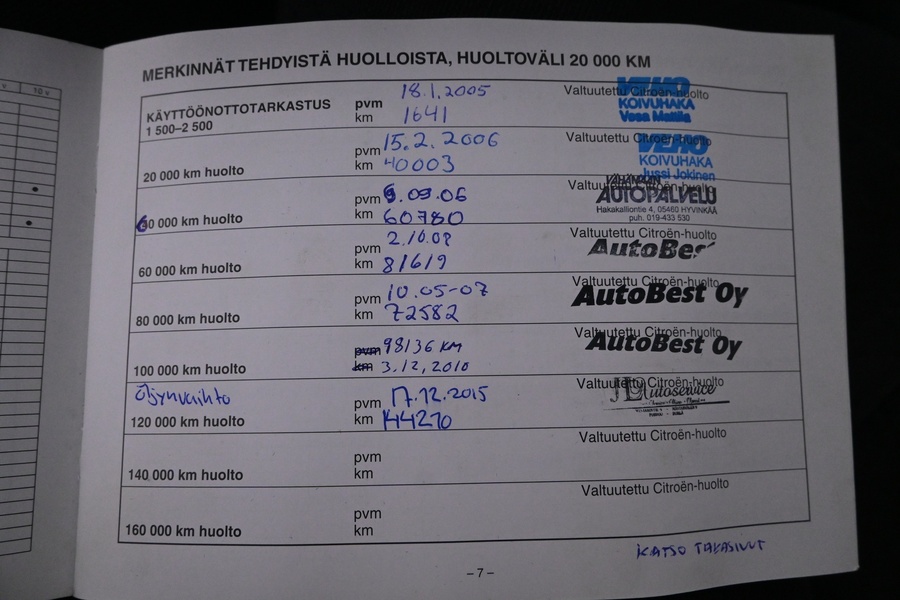 10 v.
MERKINNÄT TEHDYISTÄ HUOLLOISTA, HUOLTOVÄLI 20 000 KM
KÄYTTÖÖNOTTOTARKASTUS
1 500–2 500
pvm 18.1.2005
km 1641
Valtuutettu Citroën-huolto
VEHO
KOIVUHAKA
Vesa Mattila
20 000 km huolto
pvm 15.2.2006
km 40003
Valtuutettu Citroën-huolto
VEHO
KOIVUHAKA
Jussi Jokinen
60 000 km huolto
pvm 6.09.06
km 60780
Valtuutettu Citroën-huolto
AUTOPALVELU
Hakakalliontie 4, 05460 HYVINKÄÄ
puh. 019-433 530
60 000 km huolto
pvm 2.10.08
km 81619
Valtuutettu Citroën-huolto
AutoBes
80 000 km huolto
pvm 10.05-07
km 72582
Valtuutettu Citroën-huolto
AutoBest Oy
100 000 km huolto
pvm 98136 KM
km 3.12,2010
Valtuutettu Citroën-huolto
AutoBest Oy
Öljynvaihto
120 000 km huolto
pvm 17.12.2015
km 144210
Valtuutettu Citroën-huolto
Autoservice
140 000 km huolto
pvm
km
Valtuutettu Citroën-huolto
160 000 km huolto
pvm
km
Valtuutettu Citroën-huolto
KATSO TAKASIVUT
– 7 –